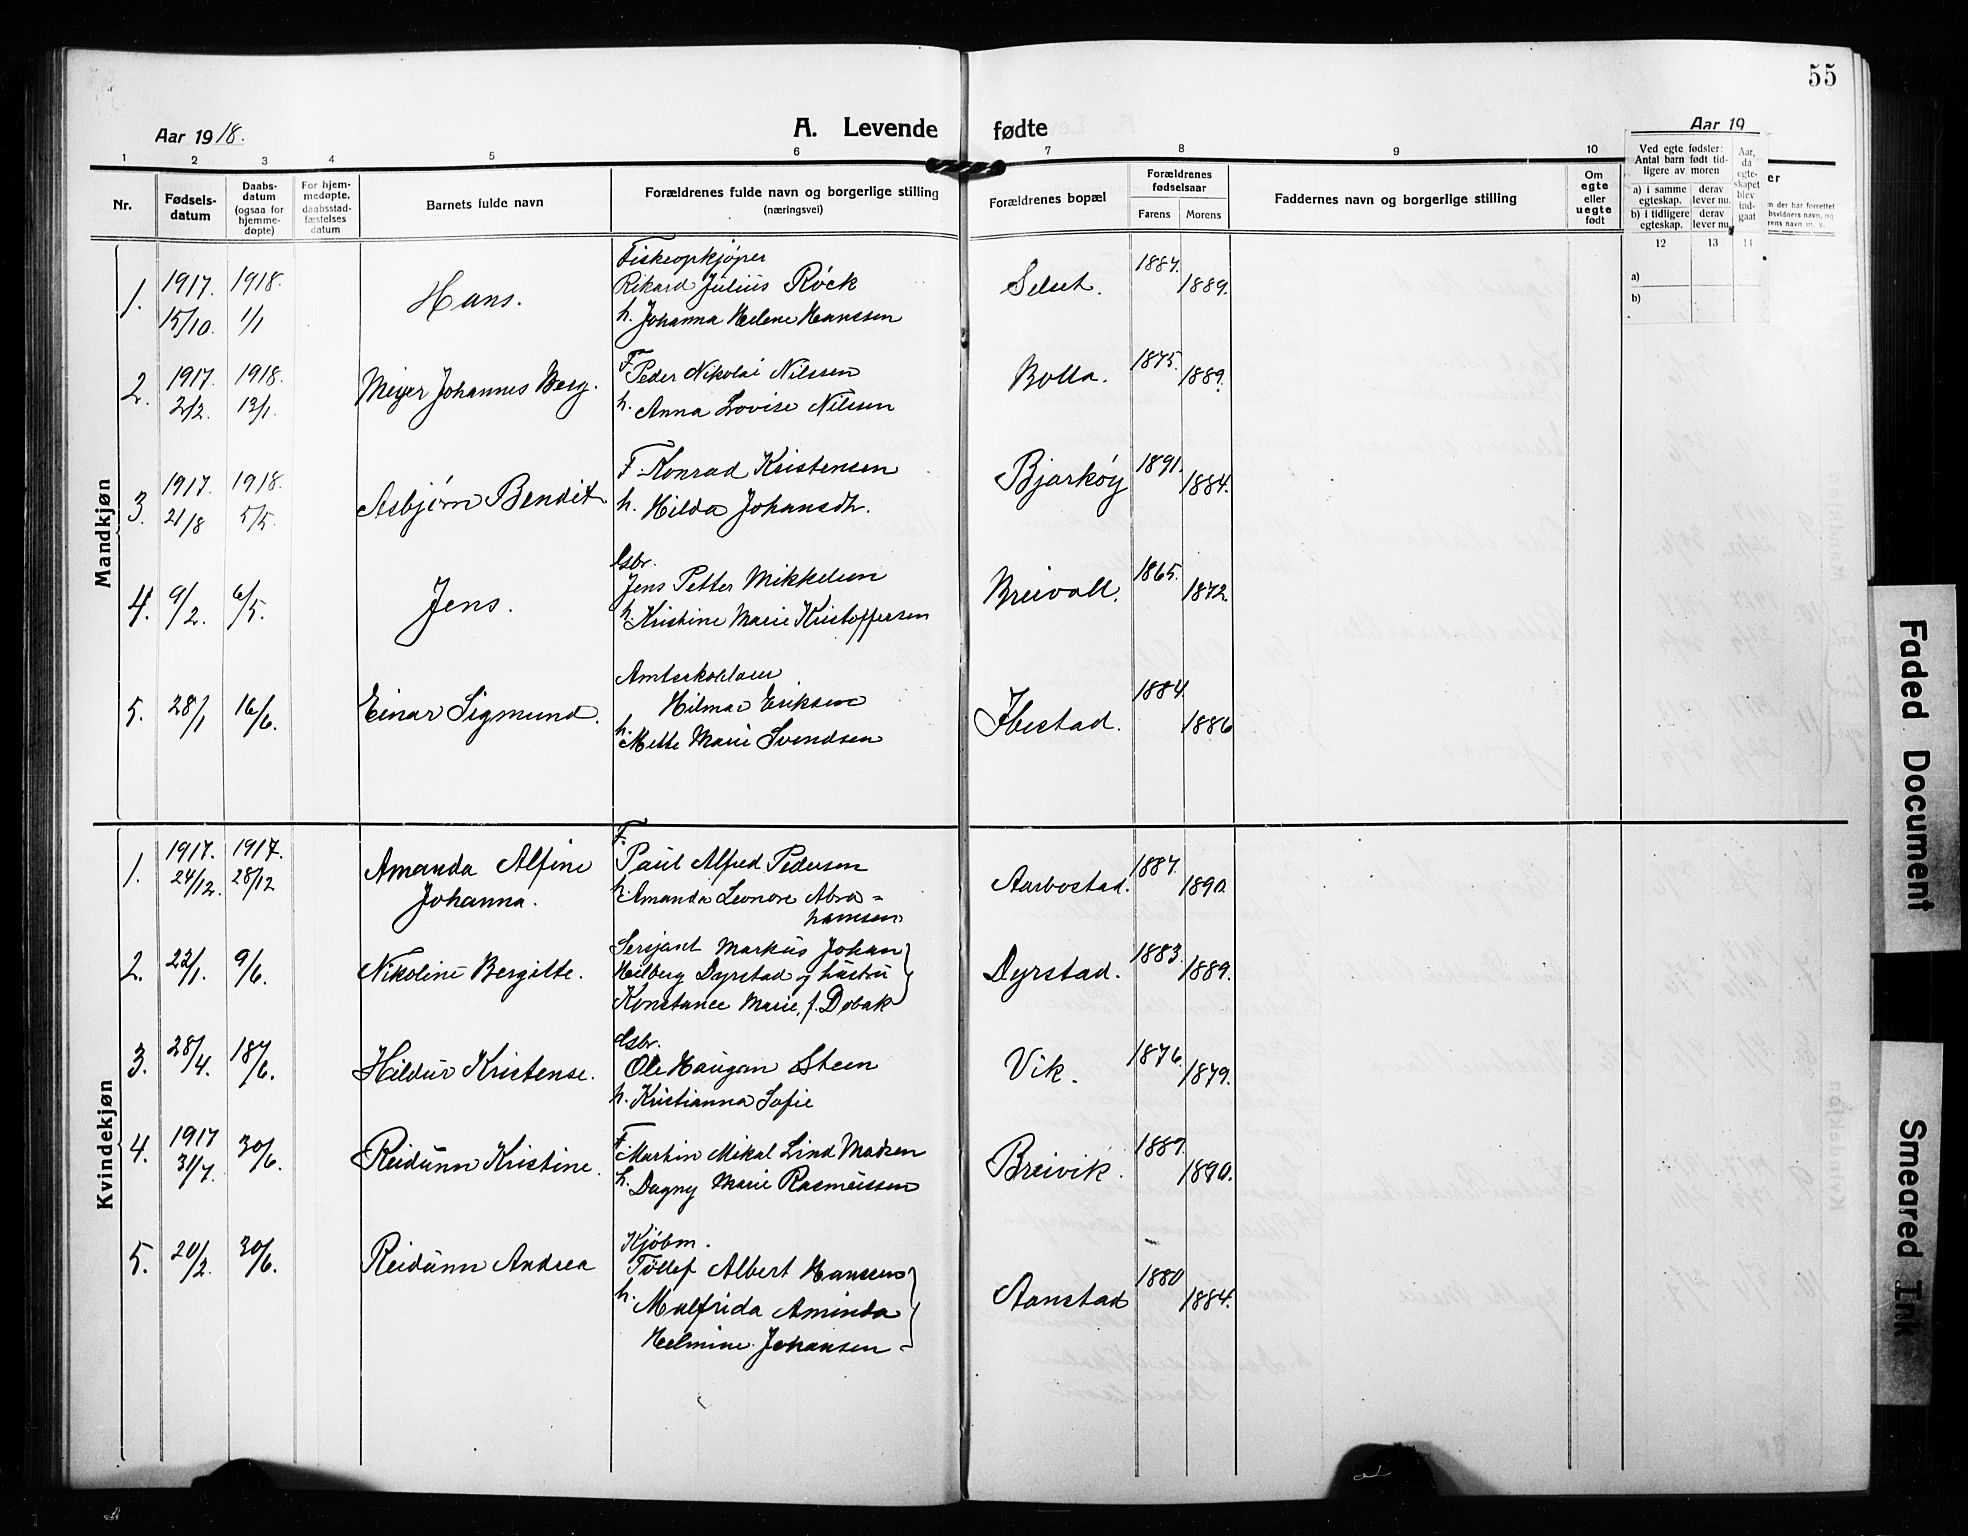 55
Aar 1918.
A. Levende fødte
Aar 19
1 2 3 4 5 6 7 8 9 10
Nr.
Fødsels-
datum
Daabs-
datum
(ogsaa for
hjemme-
døpte)
For hjem-
medøpte,
daabsstad-
fæstelses
datum
Barnets fulde navn
Forældrenes fulde navn og borgerlige stilling
(næringsvei)
Forældrenes bopæl
Forældrenes
fødselsaar
Farens Morens
Faddernes navn og borgerlige stilling
Om
egte
eller
uegte
født
Ved egte fødsler:
Antal barn født tid-
ligere av moren
a) i samme
egteskap.
derav
lever nu.
b) i tidligere
egteskap.
derav
lever nu.
Aar,
da
egte-
skapet
blev
ind-
gaat
12 13 11
a)
b)
Mandkjøn
1. 1917. 15/10. 1918. 1/1
Hans.
Fiskeopkjøper
Rikard Julius Röck
h. Johanna Helene Hanssen
Selset. 1887. 1889.
2. 1917. 2/2. 1918. 13/1.
Meyer Johannes Berg.
F. Peder Nikolai Nilssen
h. Anna Lovise Nilssen
Bolla. 1875. 1889.
3. 1917. 21/8 1918. 5/5.
Asbjørn Bendik
F. Konrad Kristensen
h. Hilda Johansdtr.
Bjarkøy 1891. 1884.
4. 9/2. 6/5.
Jens.
Gsbr.
Jens Petter Mikkelsen
h. Kristine Marie Kristoffersen
Breivoll. 1865. 1872.
5. 28/1 16/6.
Einar Sigmund.
Amtsskolelærer
Hilmar Eriksen
h. Mette Marie Svendsen
Ibestad. 1884. 1886
Kvindekjøn
1. 1917. 24/12. 1917. 28/12
Amanda Alfine
Johanna.
F.
Paul Alfred Pedersen
h. Amanda Leonore Abra=
hamsen
Aarbostad. 1887. 1890.
2. 22/1. 9/6.
Nikoline Bergitte.
Sersjant Markus Johan
Heilberg Dyrstad og hustru
Konstance Marie, f. Dobak
Dyrstad. 1883. 1889.
3. 28/4. 18/6.
Hildur Kristense.
Gsbr.
Ole Haugan Steen
h. Kristianna Sofie
Vik. 1876. 1879.
4. 1917 31/7. 30/6.
Reidunn Kristine.
F. Martin Mikal Lind Madsen
h. Dagny Marie Rasmussen
Breivik. 1889. 1890.
5. 20/2. 30/6.
Reidunn Andrea
Kjøbm.
Tollef Albert Hansen
h. Malfrida Aminda
Helmine Johansen
Aanstad 1880 1884.
Faded Document
Smeared Ink